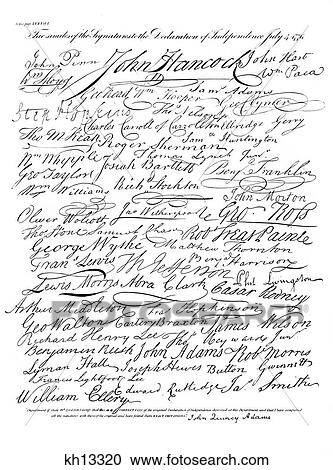 Fac similes of the Signatures to the Declaration of Independence July 4. 1776.
John Penn John Hancock John Hart
Wm Floyd Wm Paca
Geo Read Wm Hooper Saml Adams
Step Hopkins Thos Nelson jr. Geo Clymer
Charles Carroll of Carrollton Elbridge Gerry
Tho M:Kean Roger Sherman Saml Huntington
Wm Whipple Thomas Lynch Junr.
Geo Taylor Josiah Bartlett Benj Franklin
Wm Williams Richd Stockton John Morton
Oliver Wolcott Jno Witherspoon Geo. Ross
Thos Stone Samuel Chase Robt Treat Paine
George Wythe Matthew Thornton
Frans. Lewis Th Jefferson Benj Harrison
Lewis Morris Abra Clark Phil. Livingston
Casar Rodney
Arthur Middleton Fras. Hopkinson
Geo Walton Carter Braxton James Wilson
Richard Henry Lee Thos. Heyward Junr.
Benjamin Rush John Adams Robt Morris
Lyman Hall Joseph Hewes Button Gwinnett
Francis Lightfoot Lee
William Ellery Edward Rutledge Jas. Smith
John Quincy Adams
fotosearch
kh13320 www.fotosearch.com